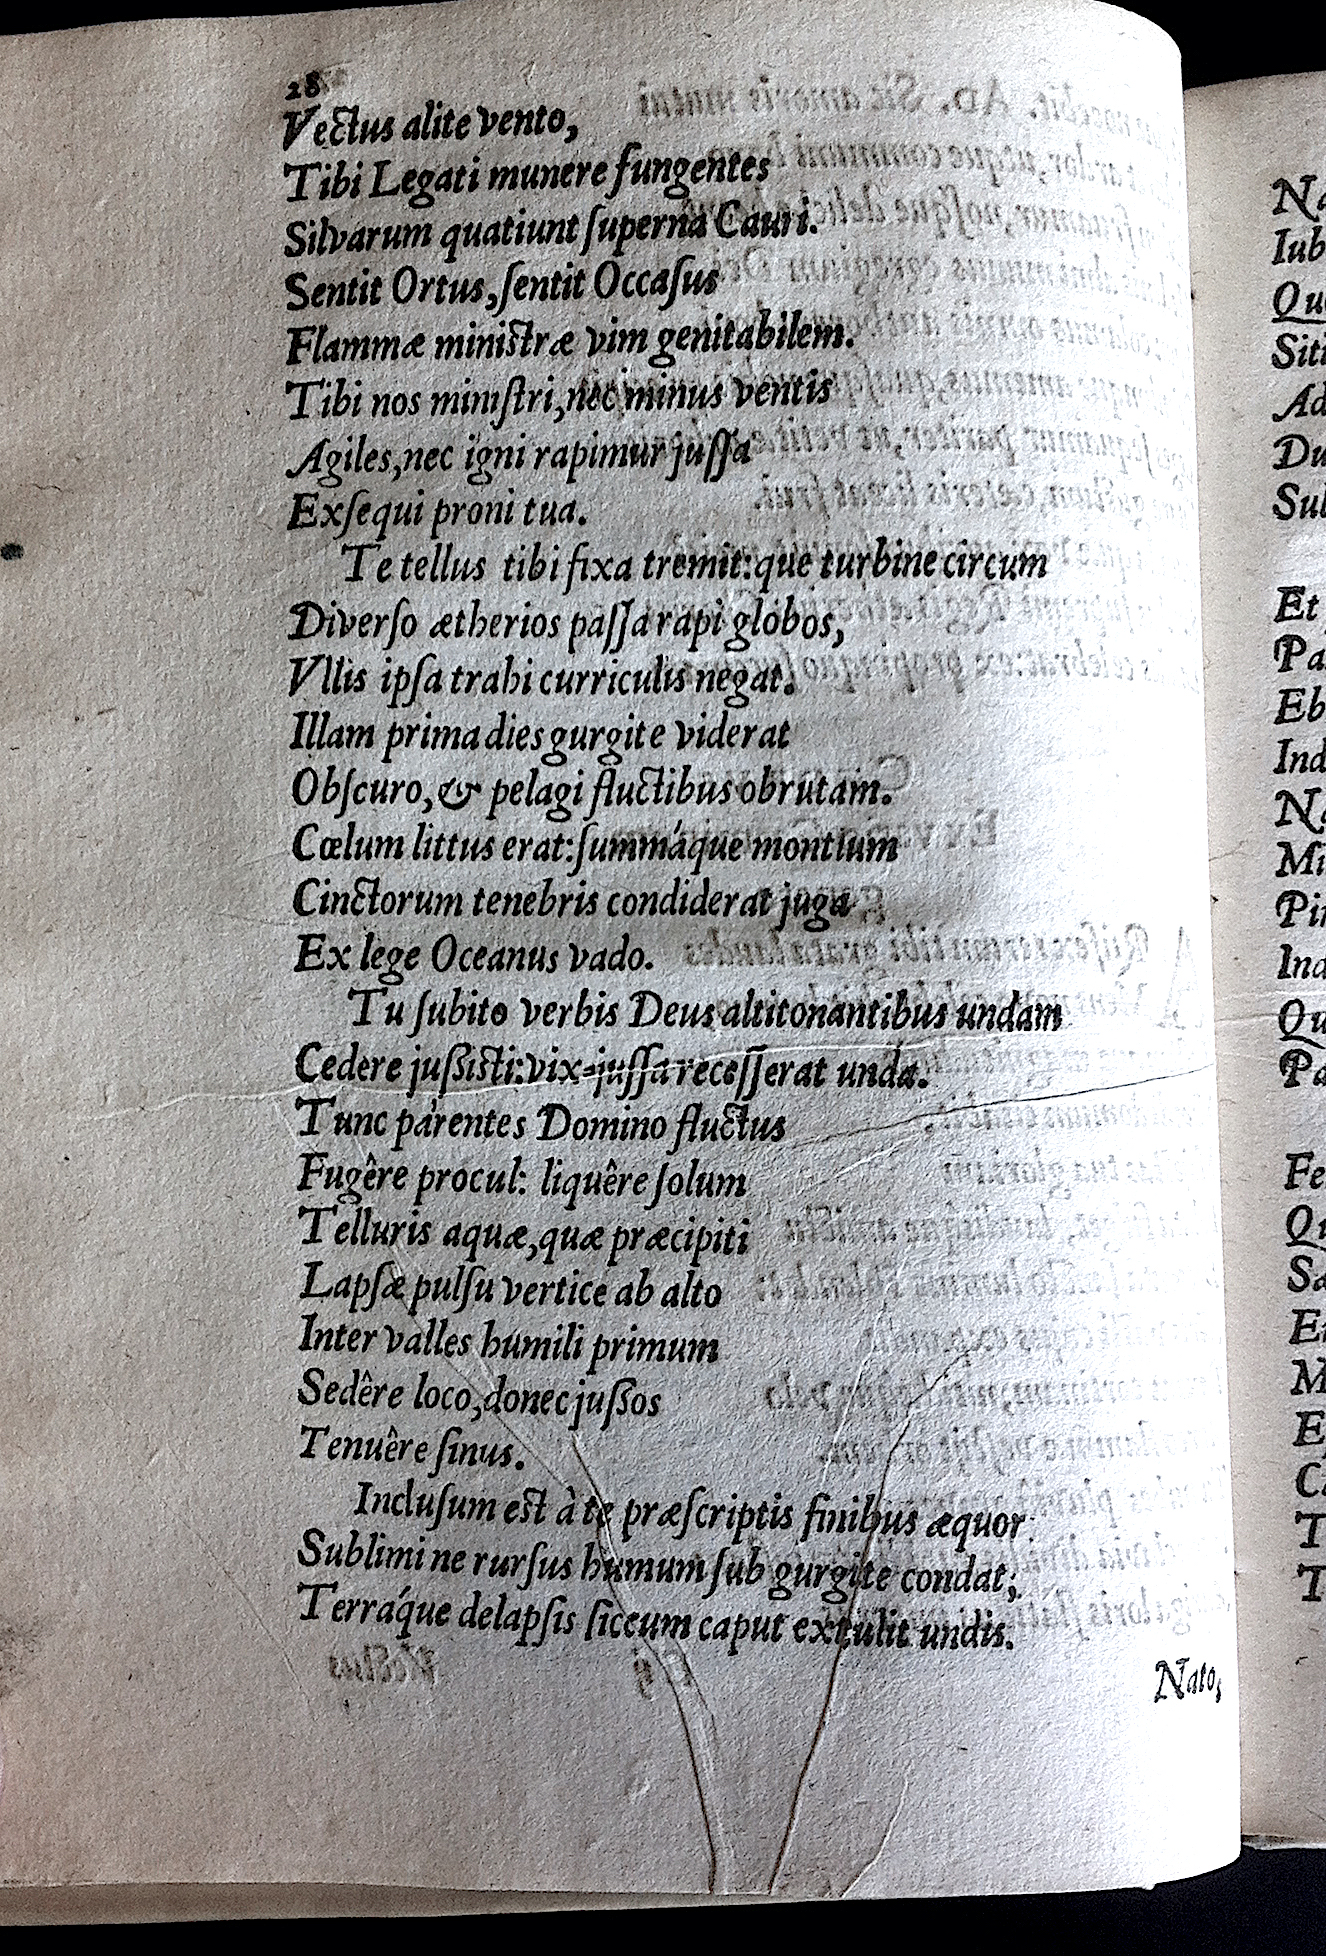 28
Vectus alite vento,
Tibi Legati munere fungentes
Silvarum quatiunt ſuperna Cauri.
Sentit Ortus, ſentit Occaſus
Flammæ miniſtræ vim genitabilem.
Tibi nos miniſtri, nec minus ventis
Agiles, nec igni rapimur juſſa
Exſequi proni tua.
Te tellus tibi fixa tremit: que turbine circum
Diverſo ætherios paſſa rapi globos,
Vllis ipſa trahi curriculis negat.
Illam prima dies gurgite viderat
Obſcuro, & pelagi fluctibus obrutam.
Cœlum littus erat: ſummáque montium
Cinctorum tenebris condiderat juga
Ex lege Oceanus vado.
Tu ſubito verbis Deus altitonantibus undam
Cedere juſsiſti: vix-juſſa receſſerat unda.
Tunc parentes Domino fluctus
Fugêre procul: liquêre ſolum
Telluris aquæ, quæ præcipiti
Lapſæ pulſu vertice ab alto
Inter valles humili primum
Sedêre loco, donec juſsos
Tenuêre ſinus.
Incluſum eſt à te præſcriptis finibus æquor:
Sublimi ne rurſus humum ſub gurgite condat;
Terráque delapſis ſiccum caput extulit undis.
Nato,
Na
Iub
Qu
Siti
Ad
Du
Sul
Et
Pa
Eb
Ind
Na
Mi
Pin
Ind
Qu
Pa
Fe
Qu
Sa
Et
M
E
C
T
T